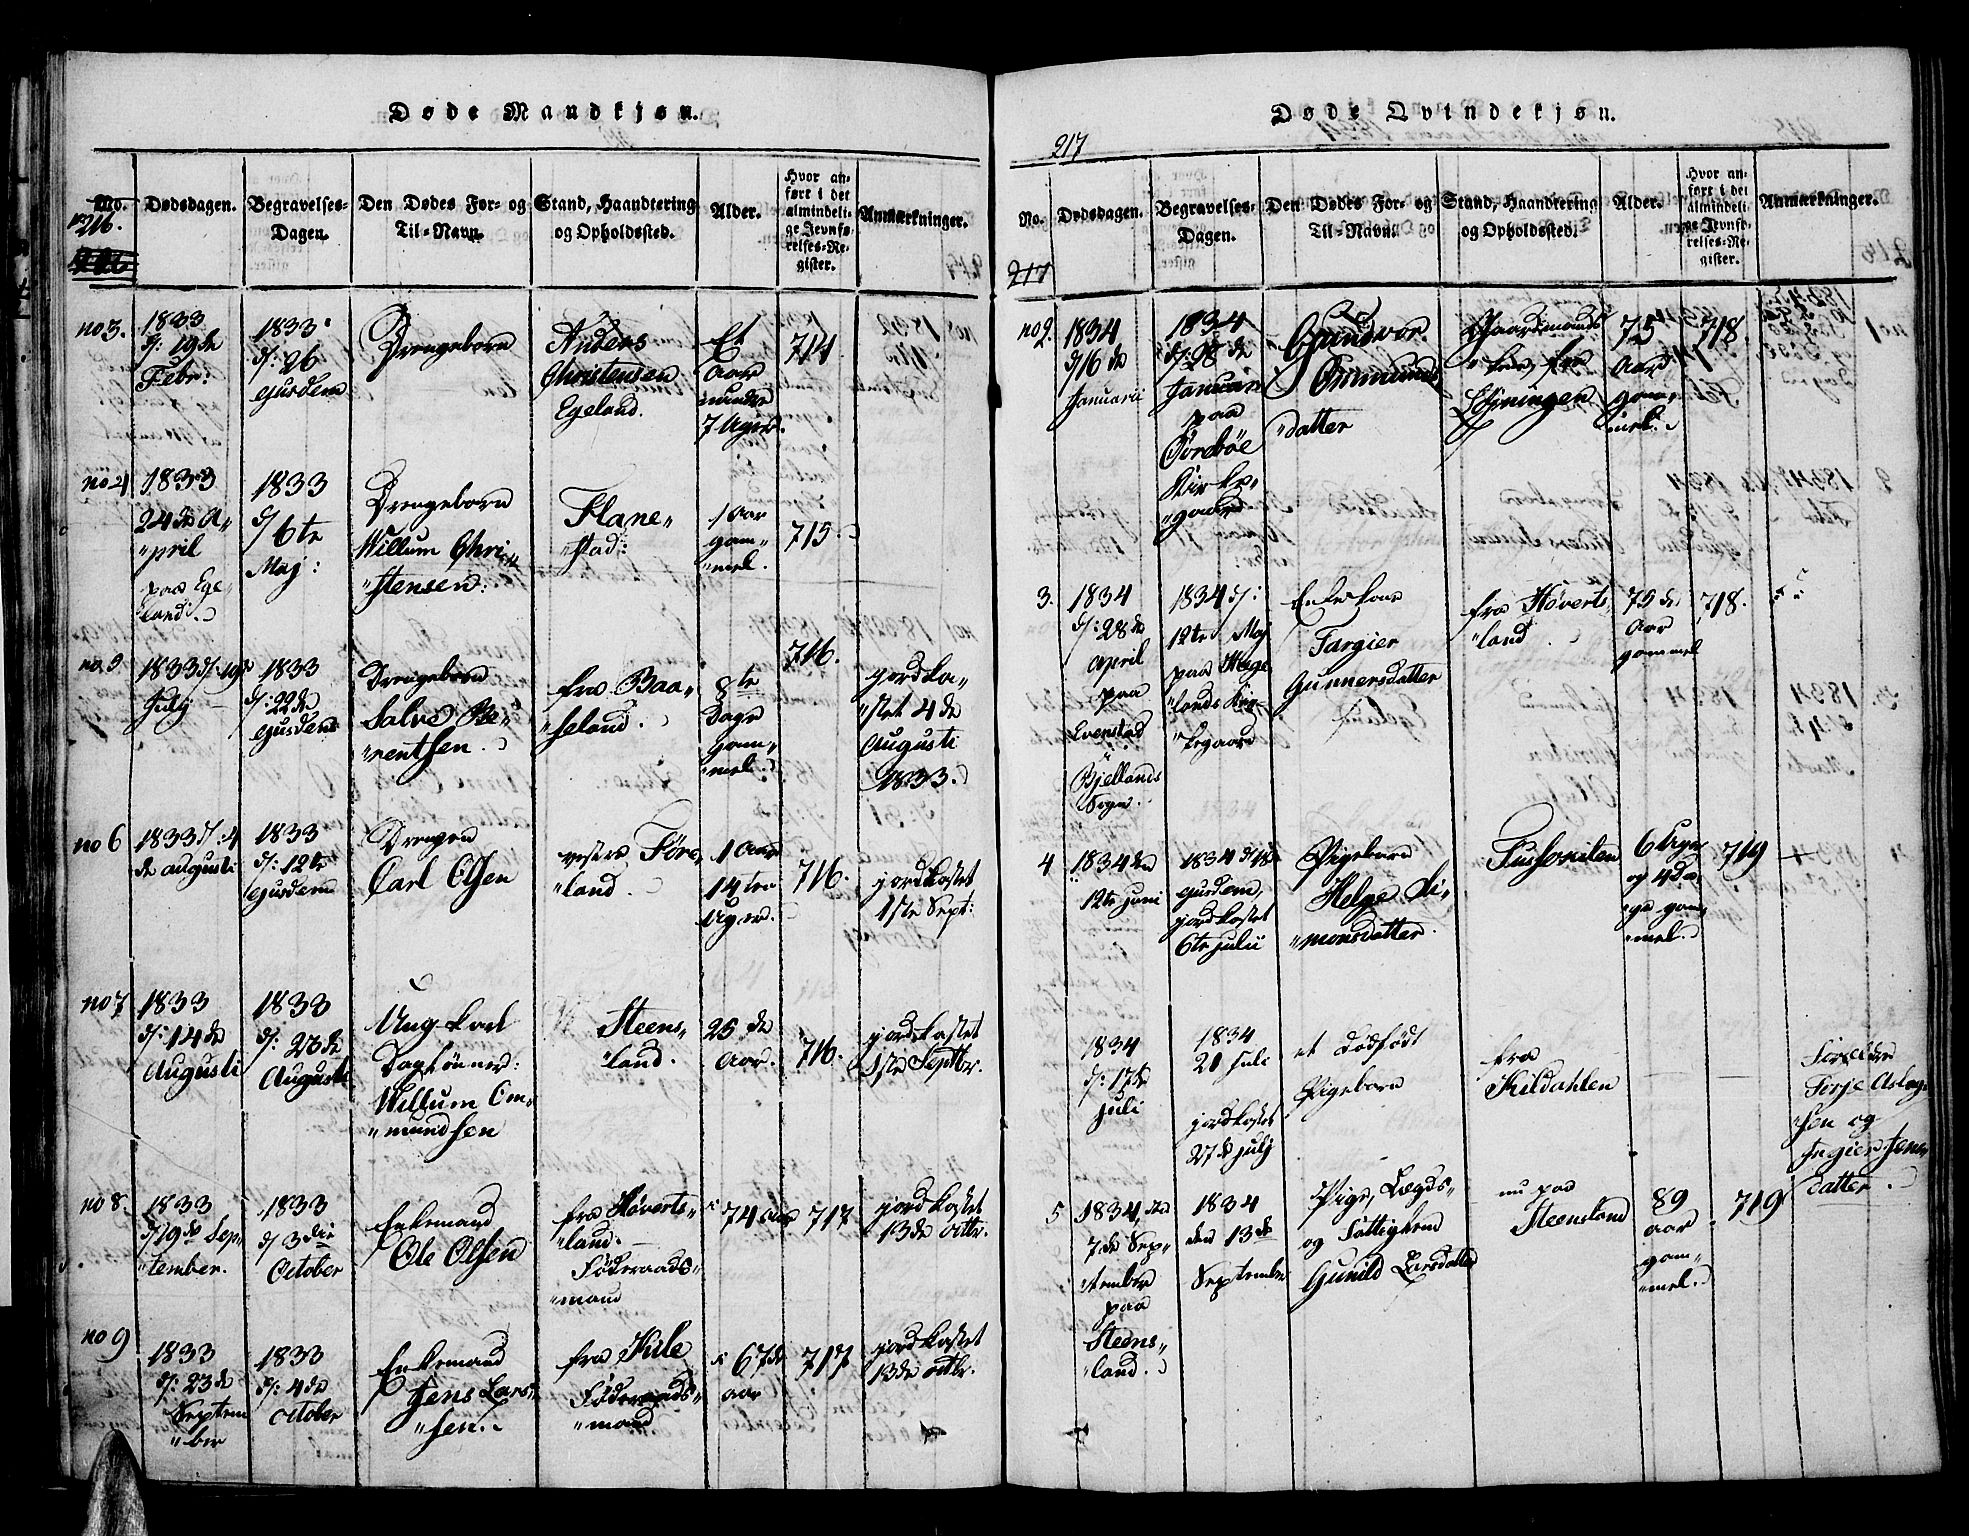 Døde Mandkjøn.
No.
Dødsdagen.
Begravelses-
Dagen.
Den Dødes For- og
Til-Navn.
Stand, Haandtering
og Opholdssted.
Alder.
Hvor an-
ført i det
almindeli-
ge Jevnfø-
relses-Re-
gister.
Anmærkninger.
216.
no 3.
1833
d: 19de
Febr:
1833
d: 26
ejusdem
Drengebarn
Anders
Christensen
Egeland.
Et
Aar
mindre
7 Uger.
714
no 4
1833
24de A-
"pril
paa Ege-
"land.
1833
d/ 6te
Maj:
Drengebarn
Willum Chri-
"stensen:
Flane-
"stad:
1 Aar
gam-
"mel.
715.
no 5
1833 d: 19de
July
1833
d: 22de
ejusdem
Drengebarn
Salve Be-
"rentsen.
fra Baa-
"seland.
8te
Dage
gam-
"mel.
716.
jordka-
"stet 4de
Augusti
1833.
no 6
1833 d: 4
de augusti
1833
d: 12te
ejusdem
Drengen
Carl Olsen
vestre Føre-
"land.
1 Aar
14ten
Uger.
716.
jordkastet
1ste Sept:
no 7
1833
d: 14de
Augusti
1833
d: 23de
Augusti
Ung Karl
Daglønner:
Willum Om-
"mundsen
Steens-
"land.
25de
Aar.
716.
jordkastet
1ste Septbr.
no 8.
1833
d/19de Sep-
"tember.
1833
d/ 3die
October
Enkemand
Ole Olsen
fra Høverts-
"land.
Føderaads-
"mand
74 Aar
717
jordkastet
13de octbr.
no 9
1833
d: 23de
Septem
"ber
1833
d: 4de
October
Enkemand
Jens Lars-
"sen.
fra Kile
Føderaads-
"mand
67de
aar
717
jordkastet
13de octbr.
Døde Qvindekjøn.
217
No.
Dødsdagen.
Begravelses-
Dagen.
Den Dødes For- og
Til-Navn.
Stand, Haandtering
og Opholdssted.
Alder.
Hvor an-
ført i det
almindeli-
ge Jevnfø-
relses-Re-
gister.
Anmærkninger.
217
no 2.
1834
d/16de
Januarii
1834
d: 28de
Januarii
paa
Kirke-
"gaard
Gundvor
Ommunds
"datter
Gaardmands
Løjningen
75
Aar
gam-
"mel.
718.
3.
1834
d: 28de
april
paa
Evenstad
i
Bjellands
Sogn.
1834 d:
12te Maj
paa Hæge
"lands Kir-
"kegaard
Enkekone
Targier
Gunnersdatter
fra Høverts
"land.
75de
Aar
gammel
718.
4
1834 den
12te juni
1834 d18de
ejusdem,
jordkastet
6te julii
Pigebarn
Helge Si-
"monsdatter.
Fussomilen
6 Uger
og 4da-
"ge gam-
"mel.
719
1834
d: 17de
juli
1834
20 juli
jordkastet
27de july
et dødfødt
Pigebarn
fra
Kildahlen
Forældre
Terje Aslag-
"sen og
Ingier Jens-
datter.
5
1834, den
7de Sep-
"tember
paa
Steens-
"land.
1834
den 13de
September
Pige, Lægds-
og Fattiglem
Gunild Larsdatter
nu paa
Steensland
89
aar
gam-
"mel.
719